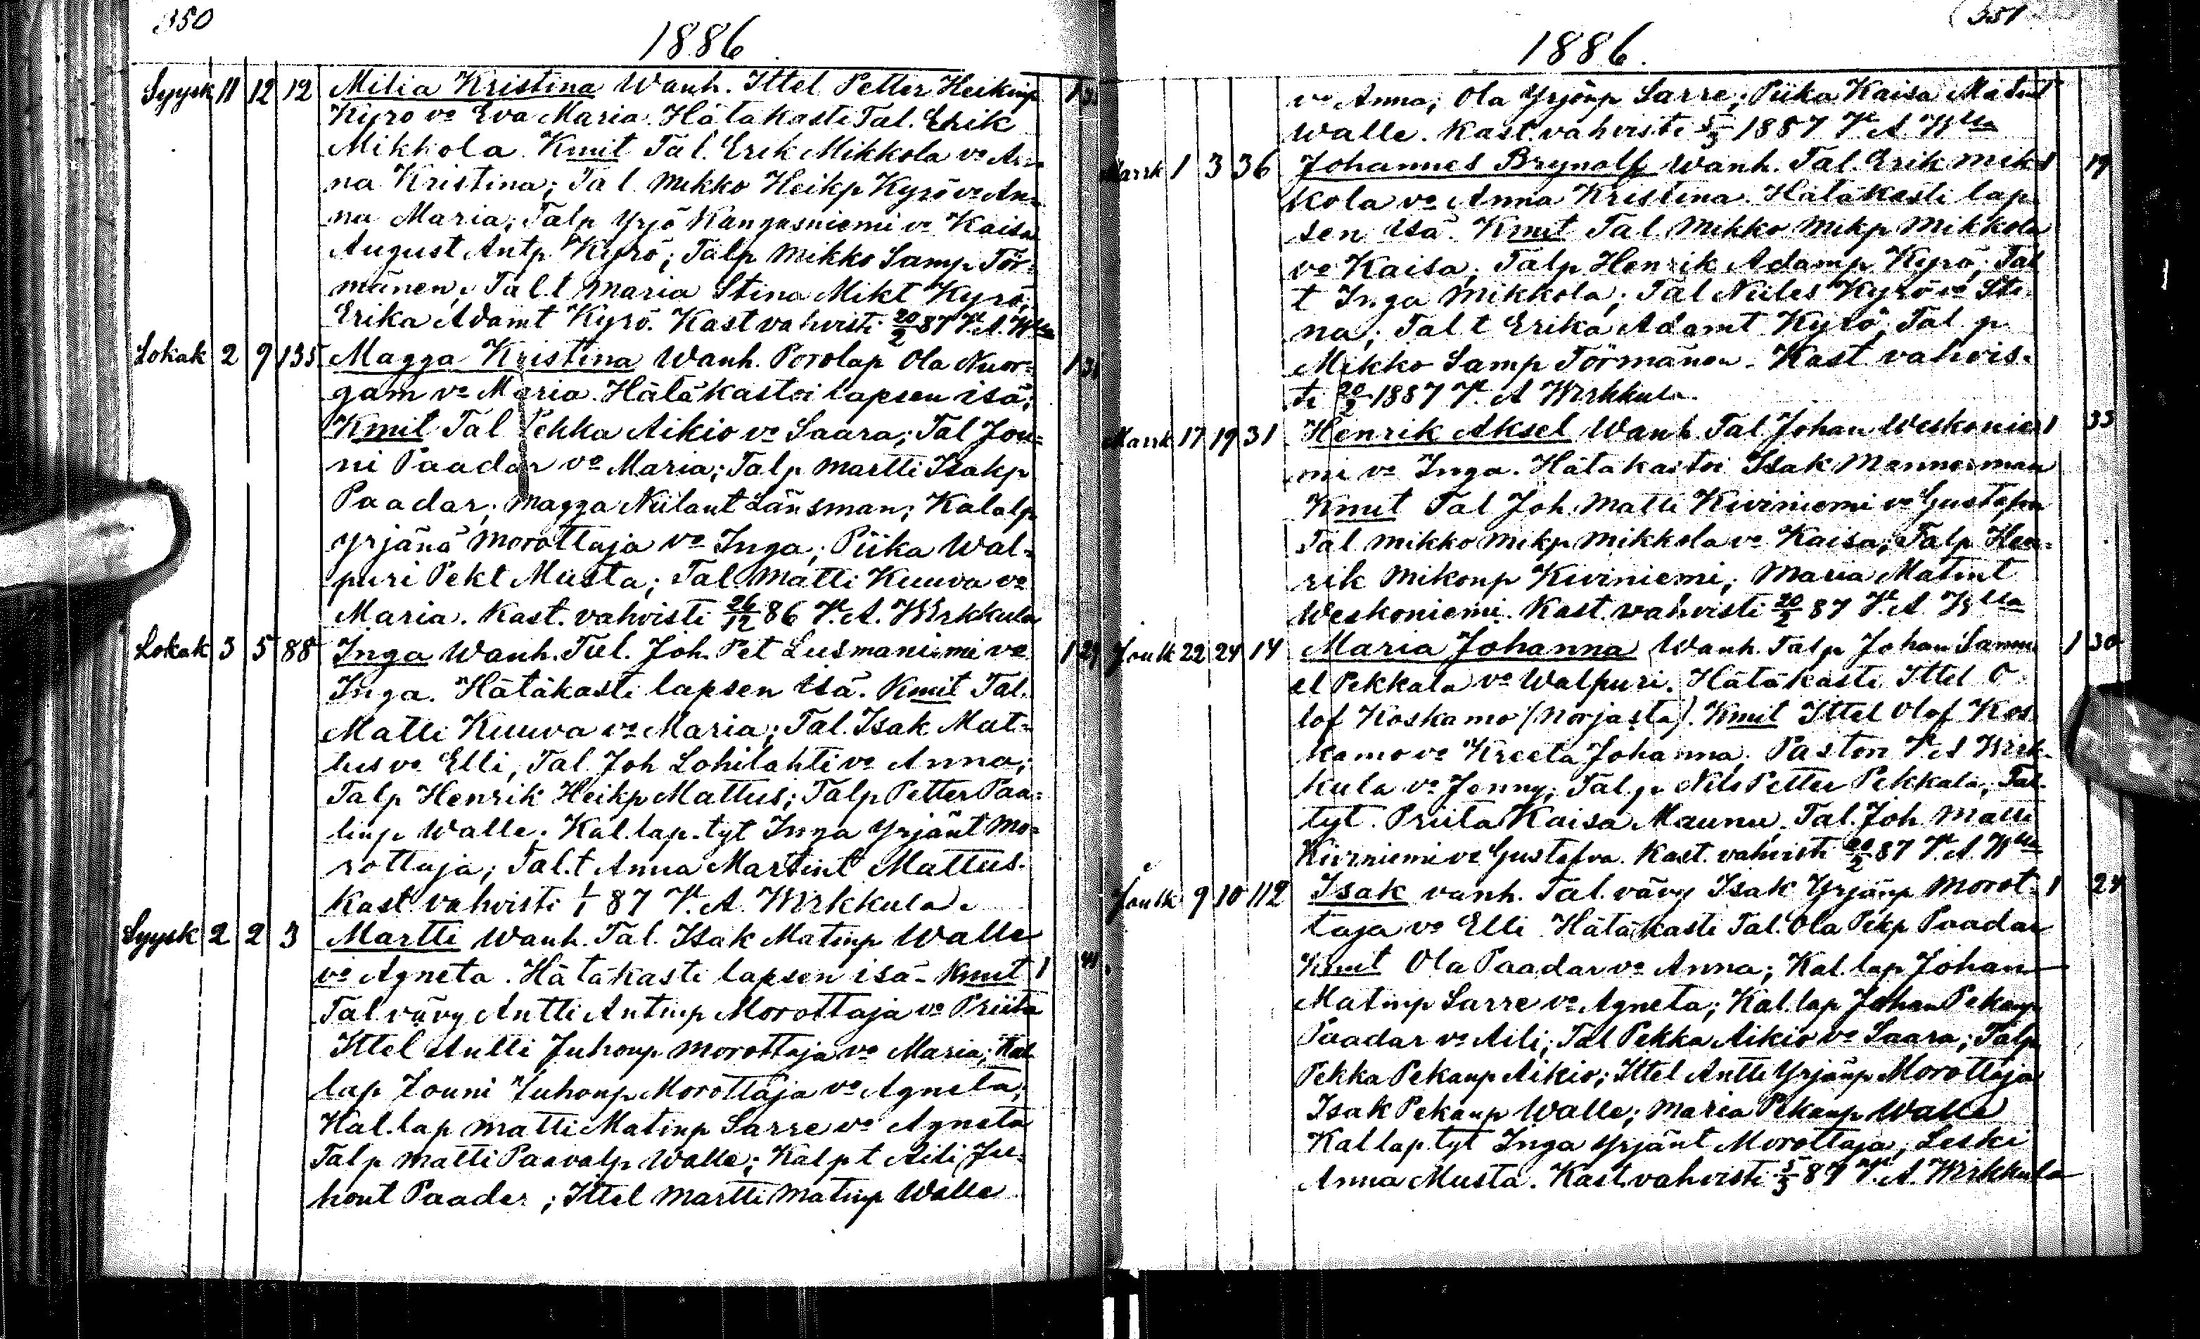 350
1886
Syysk 11 12 12 Milia Kristina Wanh. Ittel Petter Heikinp
Kyrö vo Eva Maria. Hätäkasti Tal. Erik
Mikkola. Kmit Tal. Erik Mikkola vo An-
na Kristina; Tal. Mikko Heikp Kyrö vo An-
na Maria; Talp Yrjö Kangasniemi vo Kaisa
August Antp Kyrö; Talp Mikko Samp Tör-
mänen, Tal.t Maria Stina Mikt Kyrö;
Erika Adamt Kyrö. Kast vahvisti 20/2 87 V. A. W:la
Lokak 2 9 135 Magga Kristina Wanh. Porolap Ola Nuor= 1
gam vo Maria. Hätäkastoi lapsen isä;
Kmit Tal Pekka Aikio vo Saara; Tal Jou=
ni Paadar vo Maria; Talp Martti Isakp
Paadar; Magga Niilant Länsman; Kalalp
Yrjänä Morottaja vo Inga; Piika Wal=
puri Pekt Musta; Tal Matti Kuuva vo
Maria. Kast. vahvisti 26/12 86 V. A. Wirkkula
Lokak 3 5 88 Inga Wanh. Tal. Joh. Pet Lusmaniemi vo 1 29
Inga. Hätäkasti lapsen isä. Kmit Tal.
Matti Kuuva vo Maria; Tal. Isak Mat=
tus vo Elli, Tal. Joh Lohilahti vo Anna;
Talp Henrik Heikp Mattus; Talp Petter Paa=
linp Walle. Kal.lap.tyt Inga Yrjänt Mo=
rottaja; Tal.t Anna Martint Mattus.
Kast vahvisti 1/1 87 V. A. Wirkkula.
Syysk 2 2 3 Martti Wanh. Tal. Isak Matinp Walle
vo Agneta. Hätäkasti lapsen isä - Kmit 1
Tal vävy Antti Antinp Morottaja vo Priita
Ittel Antti Juhonp Morottaja vo Maria; Kal
lap Jouni Juhonp Morottaja vo Agneta;
Kal.lap Matti Matinp Sarre vo Agneta
Talp Matti Paavalp Walle; Kalp t Aili Ju=
hont Paadar; Ittel Martti Matinp Walle
351
1886.
vo Anna; Ola Yrjönp Sarre; Piika Kaisa Matint
Walle. Kast. vahvisti 5/3 1887 V. A. W:la
Marrk 1 3 36 Johannes Brynolf Wanh. Tal. Erik Mik 1 19
kola vo Anna Kristina. Hätäkasti lap
sen isä. Kmit Tal. Mikko Mikp Mikkola
vo Kaisa; Talp Henrik Adamp Kyrö; Tal
t Inga Mikkola; Tal Niiles Kyrö vo Sti
na; Tal t Erika Adamt Kyrö, Tal p
Mikko Samp Törmänen. Kast vahvis-
ti 20/2 1887 V. A Wirkkula.
Marrk 17 19 31 Henrik Aksel Wanh Tal Johan Weskonie 1 33
mi vo Inga. Hätäkastoi Isak Mannerman
Kmit Tal Joh. Matti Kiviniemi vo Gustafva
Tal Mikko Mikp Mikkola vo Kaisa; Talp Hen-
rik Mikonp Kiviniemi; Maria Matint
Weskoniemi. Kast. vahvisti 20/2 87 V. A W:lla
Joulk 22 24 14 Maria Johanna Wanh. Talp Johan Samu 1 30
el Pekkala vo Walpuri. Hätäkasti Ittel O
lof Koskamo (Norjasta). Kmit Ittel Olof Kos
kamo vo Kreeta Johanna, Pastori V. A Wirk-
kula vo Jenny; Tal.p Nils Petter Pekkala, Tal.
tyt. Priita Kaisa Maunu, Tal. Joh Matti
Kiviniemi vo Gustafva. Kast. vahvisti 20/2 87 V. A. W:lla
Joulk 9 10 112 Isak vanh. Tal. vävy Isak Yrjänp Morot- 1 24
taja vo Elli Hätäkasti Tal. Ola Pekp Paadar
Kmit Ola Paadar vo Anna; Kal.lap Johan
Matinp Sarre vo Agneta; Kal.lap Johan Pekanp
Paadar vo Aili; Tal Pekka Aikio vo Saara; Talp
Pekka Pekanp Aikio; Ittel Antti Yrjänp Morottaja
Isak Pekanp Walle; Maria Pekanp Walle
Kallap.tyt Inga Yrjänt Morottaja; Leski
Anna Musta. Kast. vahvisti 5/3 87 V. A. Wirkkula